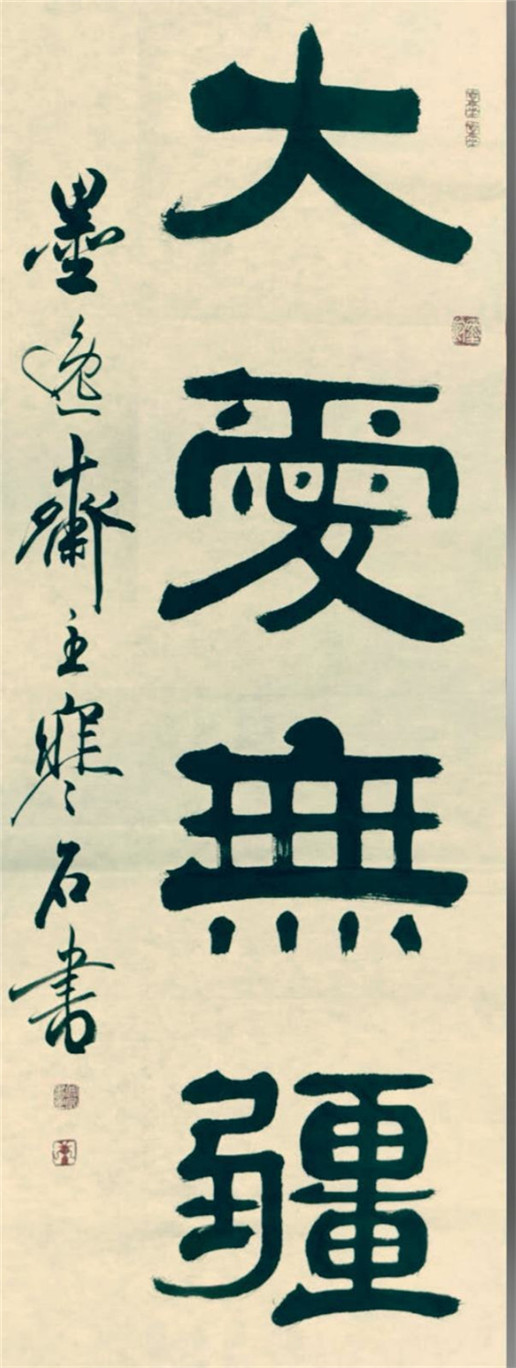 大愛無疆
墨逸齋主寒石書